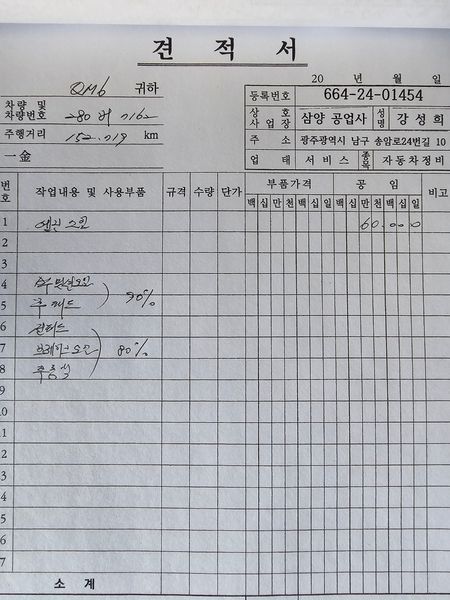 견 적 서
QM6 귀하
20 년 월 일
차량 및
차량번호
주행거리 152.719 km
一金
등록번호 664-24-01454
상 호
사 업 장 삼양 공업사 성명 강 성 희
주 소 광주광역시 남구 송암로24번길 10
업 태 서 비 스 종목 자동차정비
번호 작업내용 및 사용부품 규격 수량 단가 부품가격 공 임 비고
백 십 만 천 백 십 일 백 십 만 천 백 십 일
1 엔진오일 60.000
2
3
4
5 90%
6
7 브레이크오일 80%
8
9
10
11
2
3
4
5
6
7
소 계